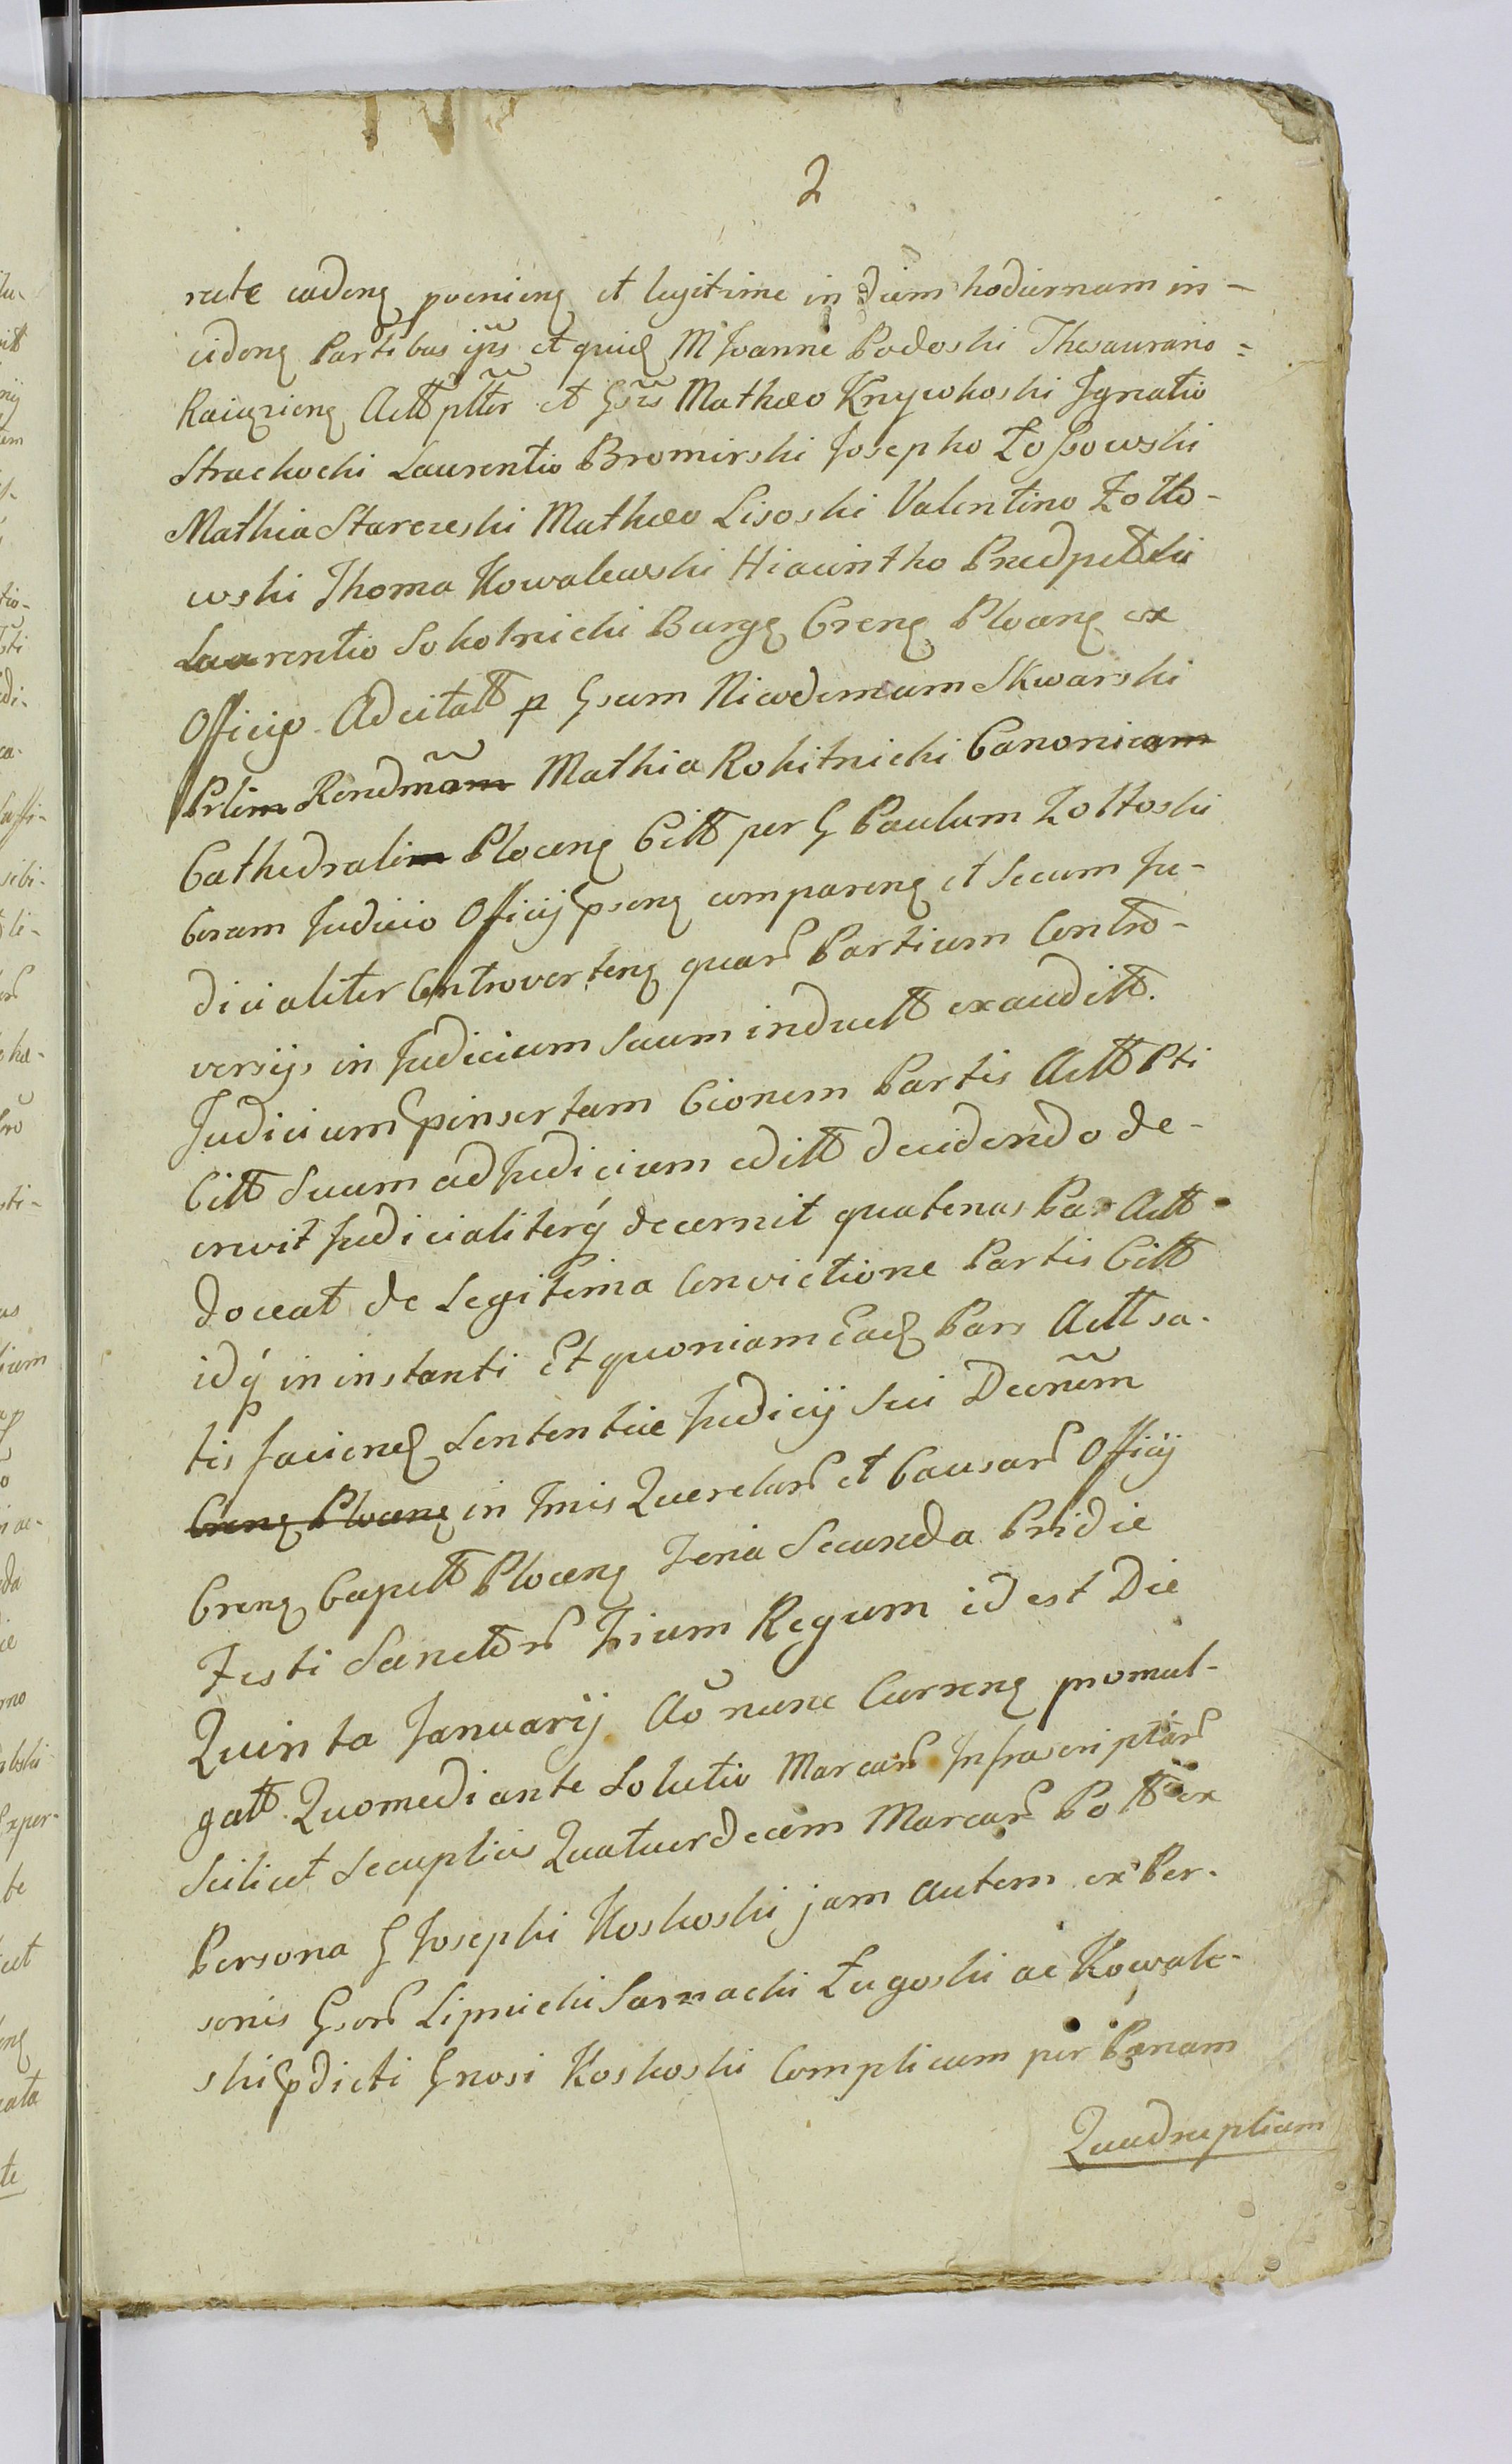 2
rute cadenꝫ provenienꝫ et legitime in diem hodiernam in-
cidenꝫ Partibus ijs et quidꝫ M Joanne Podoski Thesaurario
Raciązienꝫ Actt pltter et Gsis Mathæo Knywkoski Ignatio
Strachocki Laurentio Bromirski Josepho Łossowski
Mathia Starczeski Mathæo Lisoski Valentino Zołto-
wski Thoma Kowalewski Hiacintho Przedpełski
Laurentio Sokolnicki Burgꝫ Crenꝫ Plocenꝫ ex
Officio Adcitatt p Gsum Nicodemum Skwarski
Prlim Rendmam Mathia Rokitnicki Canonicam
Cathedralim Plocenꝫ Citt per G Paulum Zołtoski
Coram Judicio Officij psenꝫ comparenꝫ et Secum Ju-
dicialiter Controvertenꝫ quar Partium Contro-
versijs in Judicium Suum inductt exauditt.
Judicium pinsertam Cionem Partis Actt Pti
Citt Suum ad Judicium editt decidendo de-
crevit Judicialiterq́ decernit quatenus Pars Actt
doceat de Legitima Convictione Partis Citt
idq́ in instanti Et quoniam Eadꝫ Pars Actt sa-
tis faciendꝫ Sententiæ Judicij Sui Decretm
Crenꝫ Plocenꝫ in Tmis Querelar et Causar Officij
Crenꝫ Capitt Plocenꝫ Feria Secunda Pridie
Festi Sanctor Trium Regum id est Die
Quinta Januarij Ao nunc Currenꝫ promul-
gatt. Quomediante Solutio Marcar Infrascriptar
Scilicet Secuplicis Quatuordecim Marcar Poll ex
Persona G Josephi Koskoski jam autem ex Per-
sonis Gsor Lipnicki Sarnacki Ługoski ac Kowale-
ski pdicti Gnosi Koskoski Complicum per Pænam
Quadruplicem